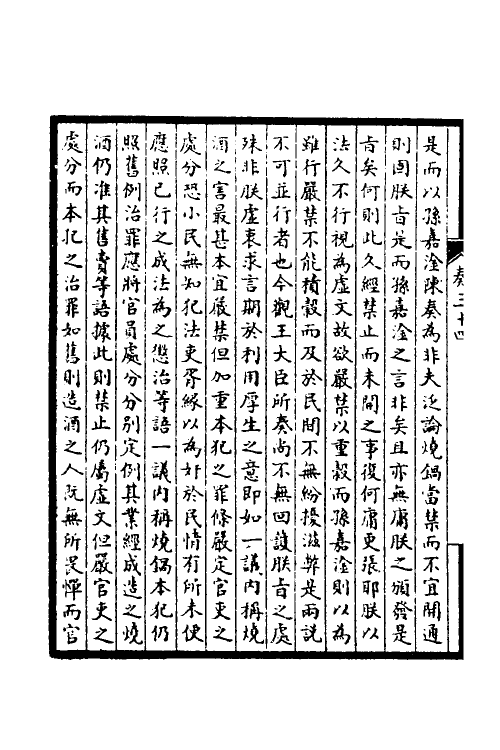 是而以孫嘉淦陳奏為非夫泛論燒鍋當禁而不宜開通
則固朕旨是而孫嘉淦之言非矣且亦無庸朕之頒發是
旨矣何則此久經禁止而未開之事復何庸更張耶朕以
法久不行視為虛文故欲嚴禁以重穀而孫嘉淦則以為
雖行嚴禁不能積穀而及於民間不無紛擾滋弊是兩說
不可並行者也今觀王大臣所奏尚不無回護朕旨之處
殊非朕虛衷求言期於利用厚生之意即如一議內稱燒
酒之害最甚本宜嚴禁但加重本犯之罪條嚴定官吏之
處分恐小民無知犯法吏胥緣以為奸於民情有所未便
應照已行之成法為之懲治等語一議內稱燒鍋本犯仍
照舊例治罪應將官員處分分別定例其業經成造之燒
酒仍准其售賣等語據此則禁止仍屬虛文但嚴官吏之
處分而本犯之治罪如舊則造酒之人既無所畏憚而官
卷三十四